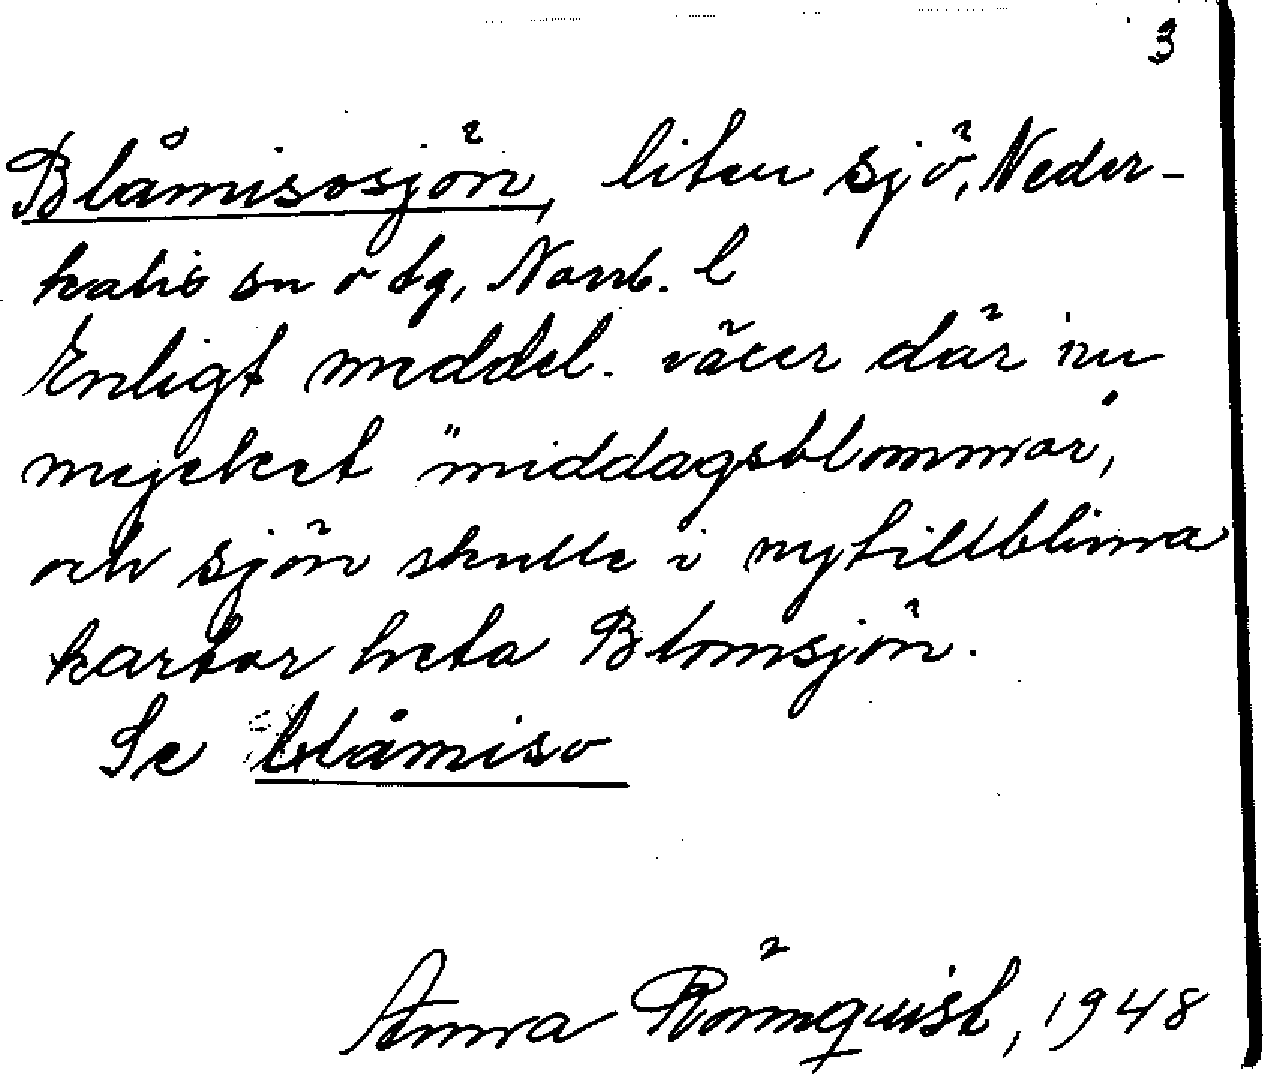 3
Blåmisosjön, liten sjö, Neder-
kalix sn o tg, Norrb. l
Enligt meddel. växer där nu
mycket "middagsblommor,"
och sjön skulle i nytillblivna
kartor heta Blomsjön.
Se blåmiso
Anna Rönnquist, 1948